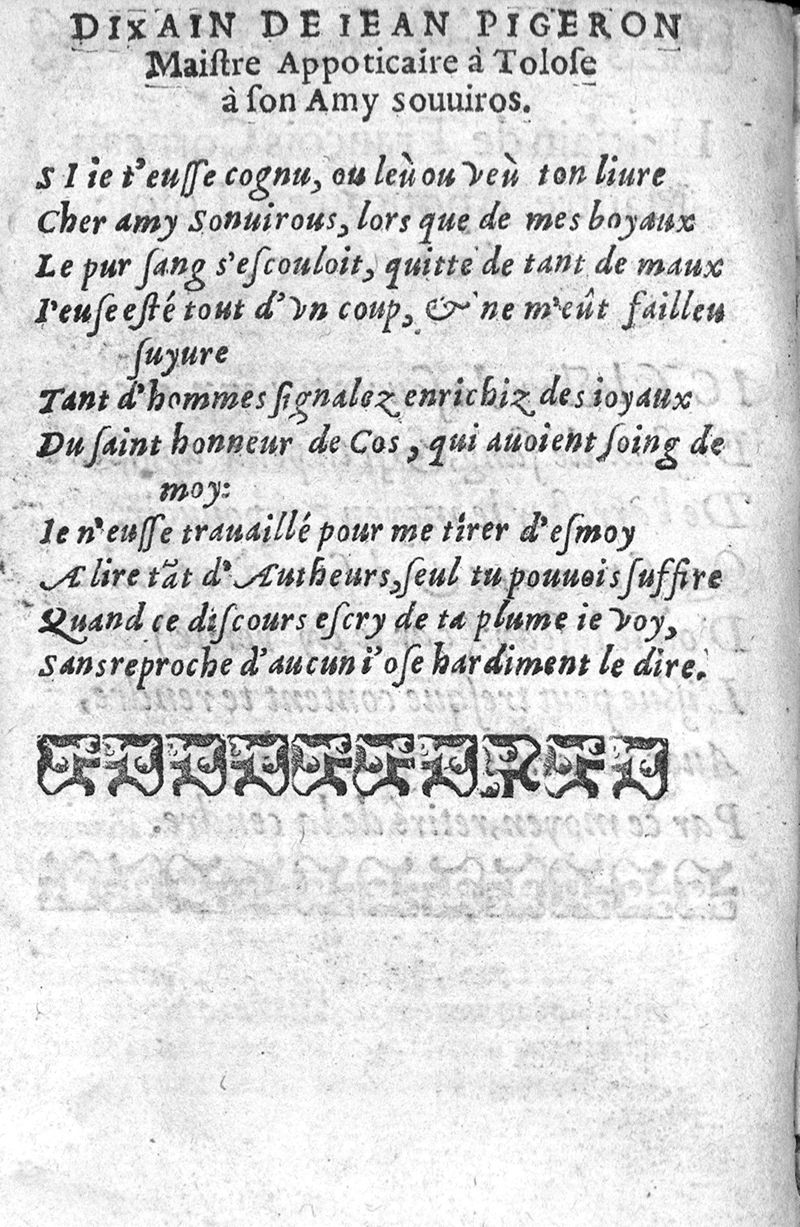 DIXAIN DE IEAN PIGERON
Maiſtre Appoticaire à Toloſe
à ſon Amy souuiros.
S I ie t'euſſe cognu, ou leù ou veù ton liure
Cher amy Sonuirous, lors que de mes boyaux
Le pur ſang s'eſcouloit, quitte de tant de maux
I'euſe eſté tout d'vn coup, & ne m'eût failleu
ſuyure
Tant d'hommes ſignalez enrichiz des ioyaux
Du ſaint honneur de Cos, qui auoient ſoing de
moy:
Ie n'euſſe trauaillé pour me tirer d'eſmoy
A lire tãt d'Autheurs, ſeul tu pouuois ſuffire
Quand ce diſcours eſcry de ta plume ie voy,
Sans reproche d'aucun i'oſe hardiment le dire.